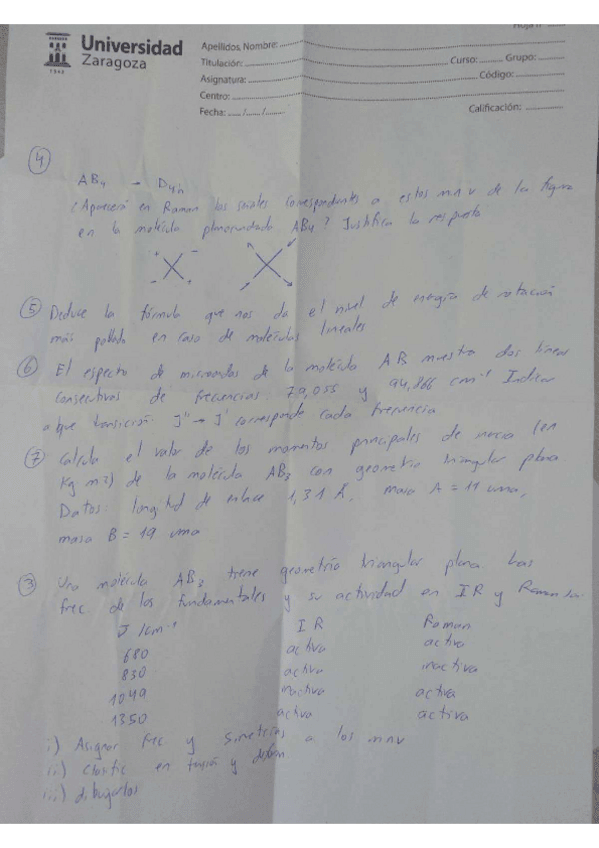 Hoja nº
Universidad
Zaragoza
1542
Apellidos, Nombre:
Titulación: Curso: Grupo:
Asignatura: Código:
Centro:
Fecha: / / Calificación:
④
AB4 → D4h
¿Aparecerá en Raman las señales correspondientes a estos mnv de la figura
en la molécula AB4? Justifica la respuesta
+ -
- +
⑤ Deduce la fórmula que nos da el nivel de energía de rotación
más poblado en caso de moléculas lineales
⑥ El espectro de microondas de la molécula AB muestra dos líneas
consecutivas de frecuencias: 79,055 y 94,866 cm-1 Indicar
a que transición J'' → J' corresponde cada frecuencia
⑦ Calcula el valor de los momentos principales de inercia (en
Kg m2) de la molécula AB3 con geometría triangular plana
Datos: longitud de enlace 1,31 Å, masa A = 11 uma,
masa B = 19 uma
③ Una molécula AB3 tiene geometría triangular plana. Las
frec. de los fundamentales y su actividad en IR y Raman
/cm-1 IR Raman
680 activa activa
830 activa inactiva
1049 inactiva activa
1350 activa activa
i) Asignar frec y simetrías a los mnv
ii) en tensión y deform.
iii) dibujarlos